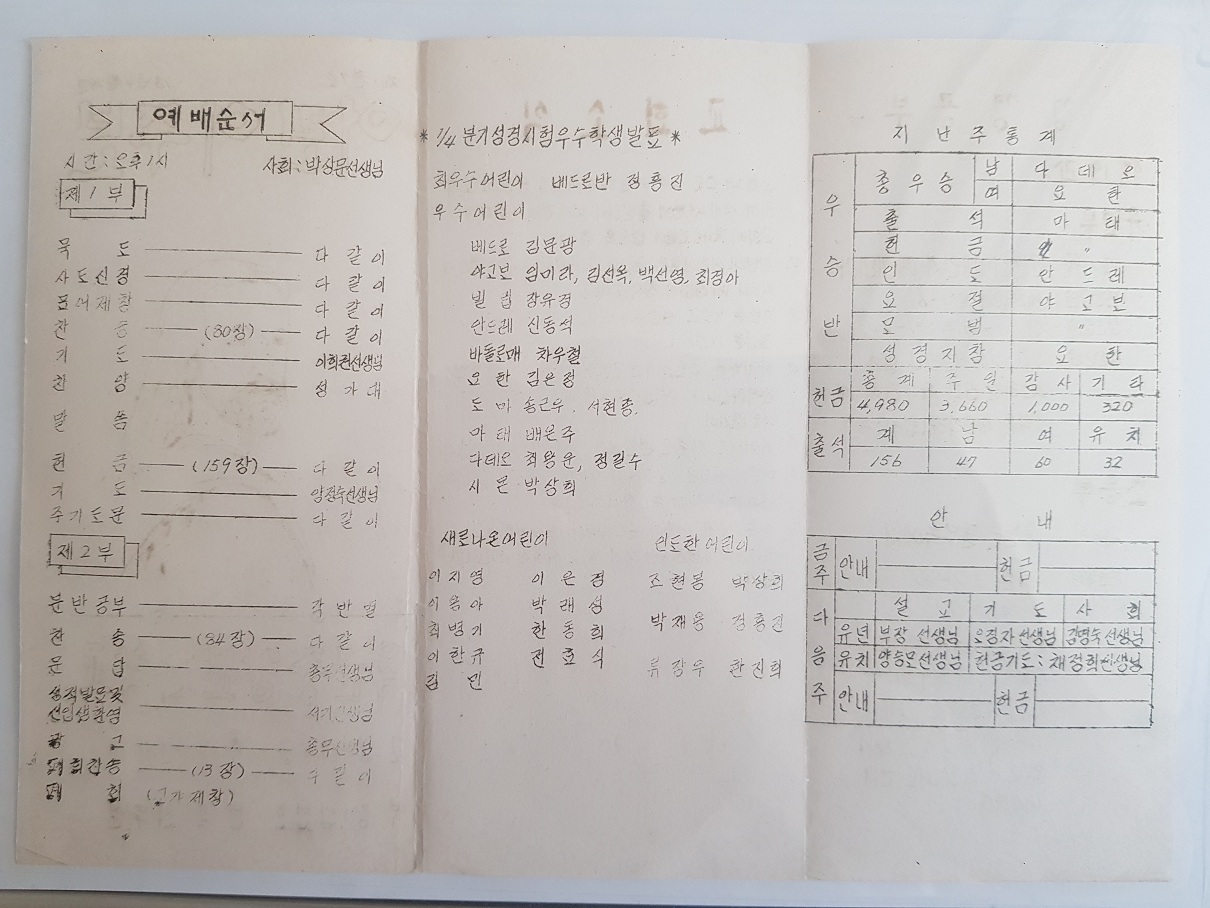 예배순서
시간: 오후 1시 사회: 박상문선생님
제1부
묵 도 다 같 이
사도신경 다 같 이
표어제창 다 같 이
찬 송 (80장) 다 같 이
기 도 이희천선생님
찬 양 성 가 대
말 씀
헌 금 (159장) 다 같 이
기 도 양진숙선생님
주기도문 다 같 이
제2부
분반공부 각 반 별
찬 송 (84장) 다 같 이
문 답 총무선생님
성적발표및
신입생환영 서기선생님
광 고 총무선생님
폐회찬송 (13장) 다 같 이
폐 회 (교가제창)
* 1/4 분기성경시험우수학생발표 *
최우수어린이 베드로반 정홍진
우수어린이
베드로 김문광
야고보 엄미라, 김선옥, 백선영, 최경아
빌립 장유경
안드레 신동석
바돌로매 차우철
요한 김은정
도마 송근우, 서현종.
마태 배은주
다데오 최용운, 정길수
시몬 박상희
새로나온어린이 인도한어린이
이지영 이은경 조현봉 박상희
이용아 박래성
최병기 한동희 박재용 정홍진
이한규 전효식
김민 류장우 한진희
지난주통계
우승반 총우승 남 다데오
여 요한
출석 마태
헌금 〃
인도 안드레
요절 야고보
모범 〃
성경지참 요한
헌금 총계 주일 감사 기타
4,980 3,660 1,000 320
출석 계 남 여 유치
156 47 60 32
안 내
금주 안내 헌금
다음주 설교 기도 사회
유년 부장 선생님 오경자선생님 김명숙선생님
유치 양승모선생님 헌금기도: 채정희선생님
안내 헌금